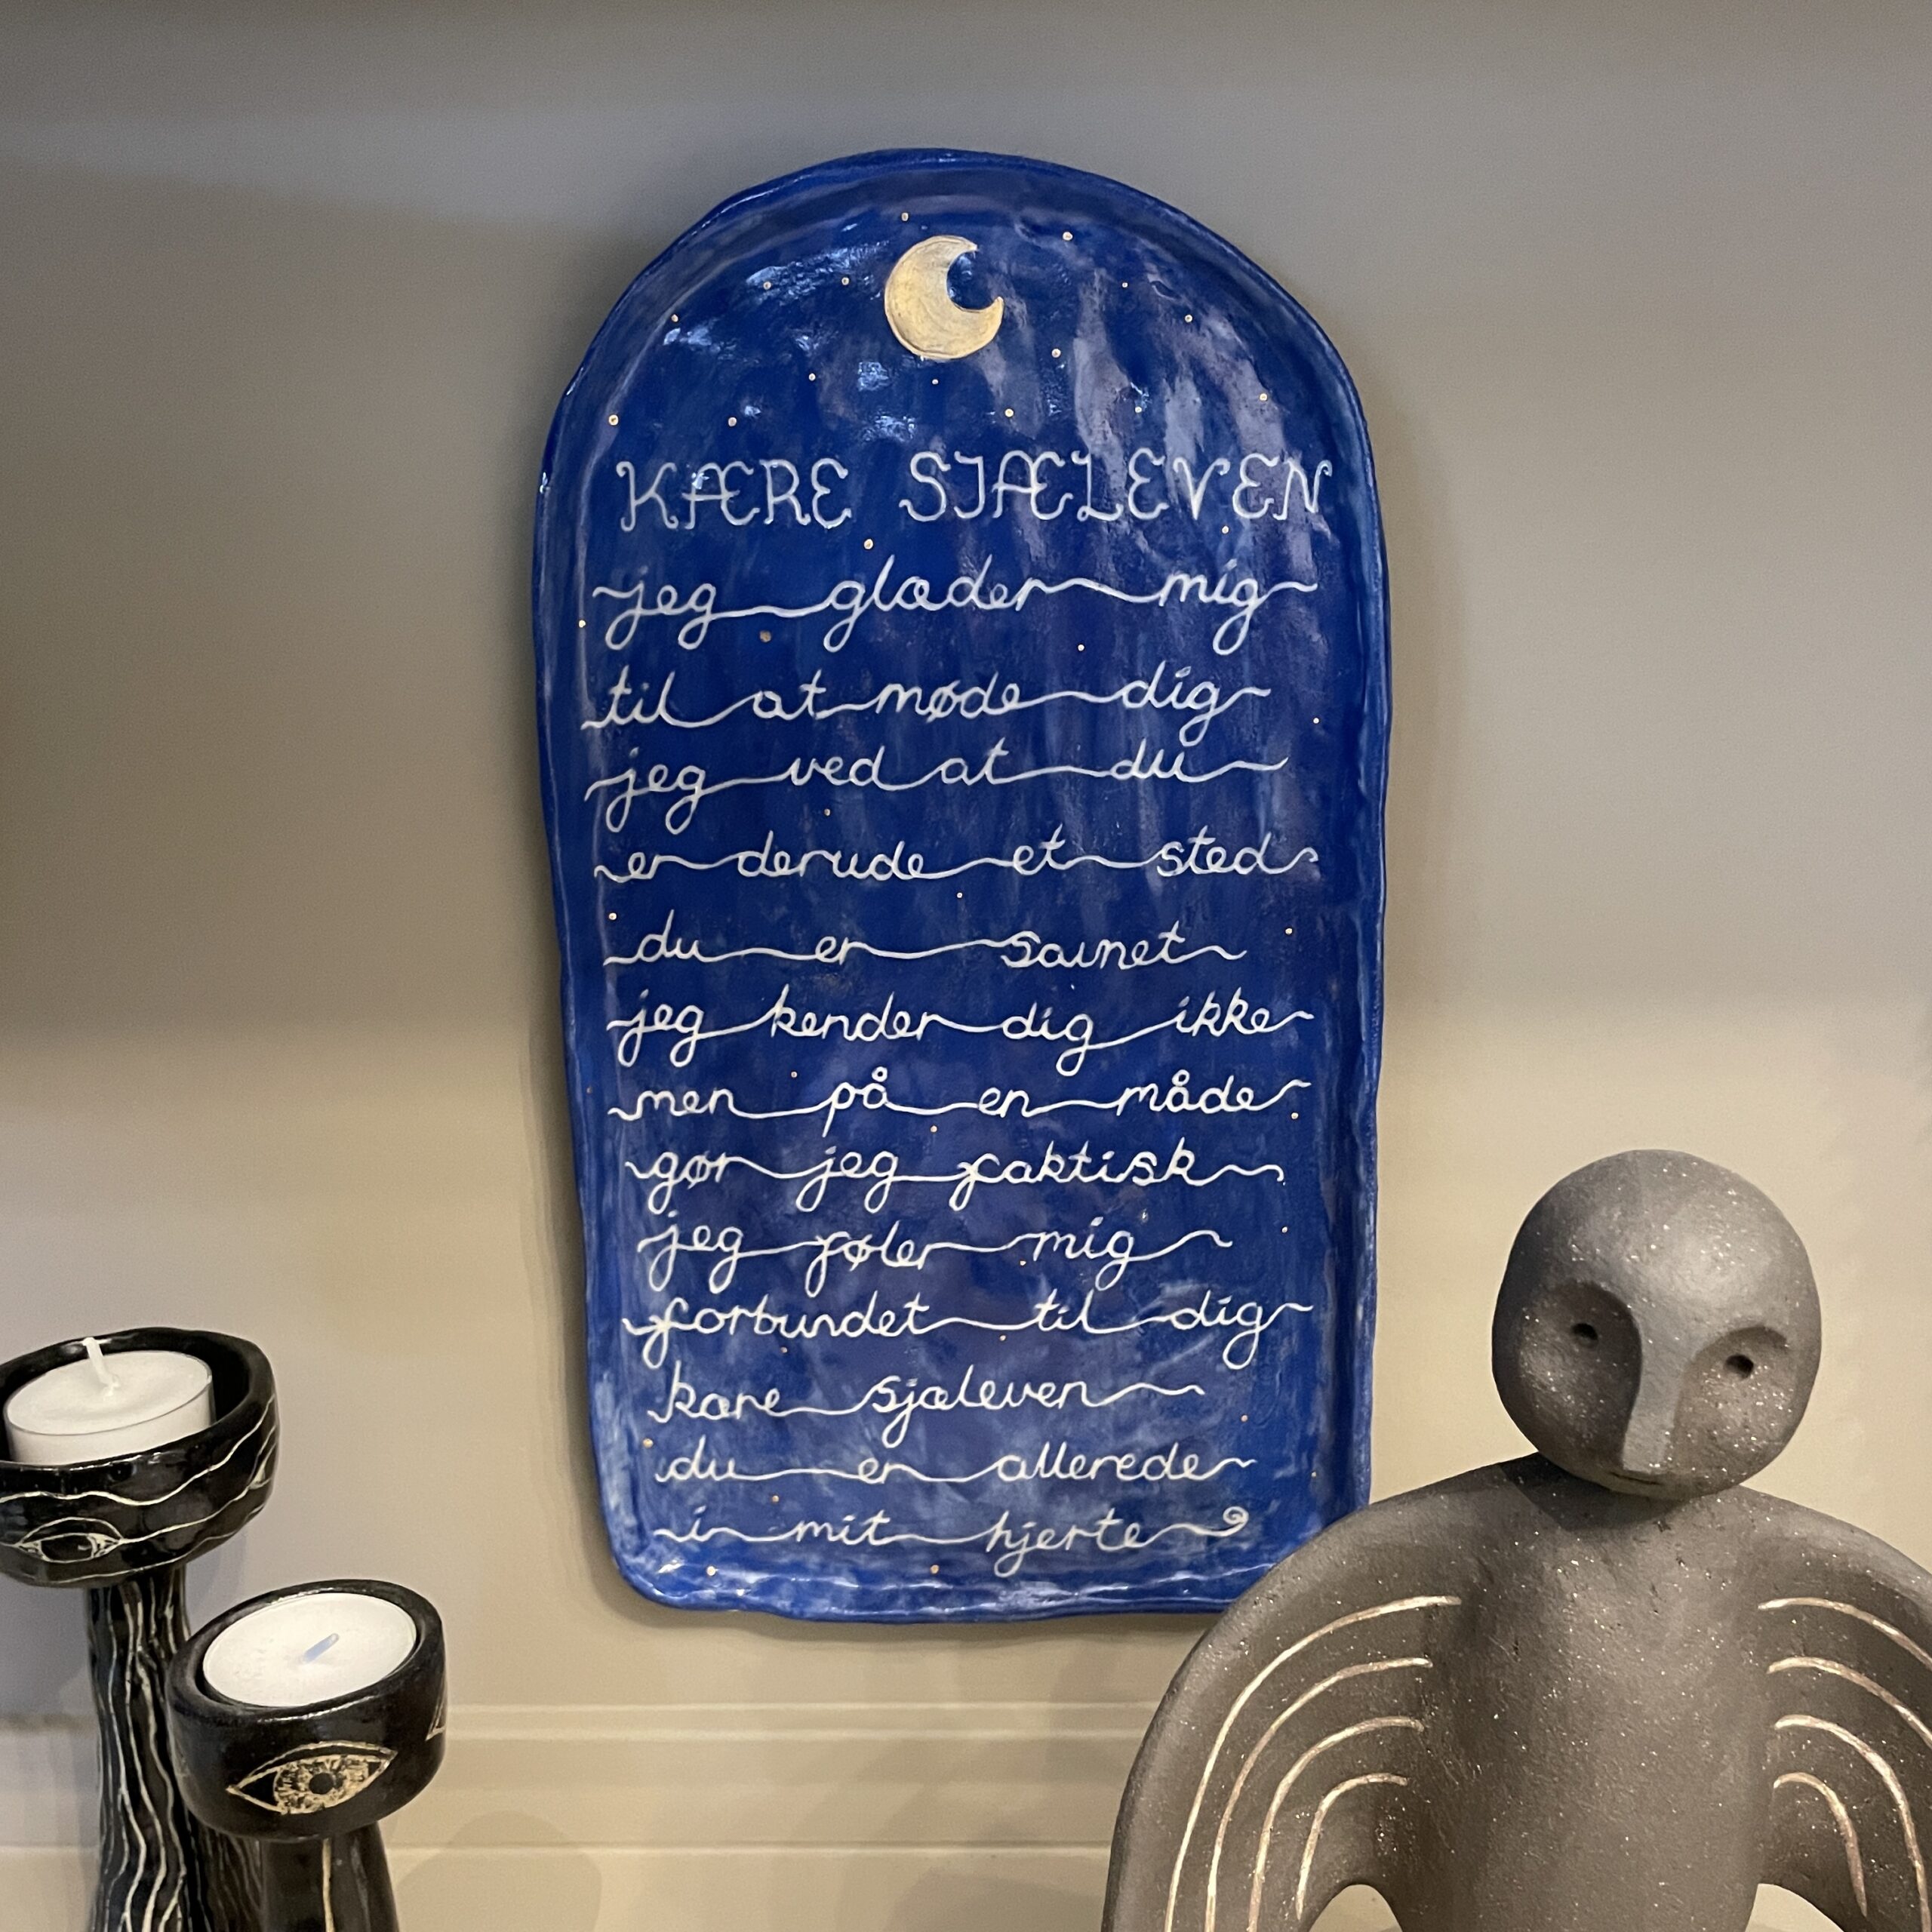 KÆRE SJÆLEVEN
jeg glæder mig
til at møde dig
jeg ved at du
er derude et sted
du er savnet
jeg kender dig ikke
men på en måde
gør jeg faktisk
jeg føler mig
forbundet til dig
kære sjæleven
du er allerede
i mit hjerte